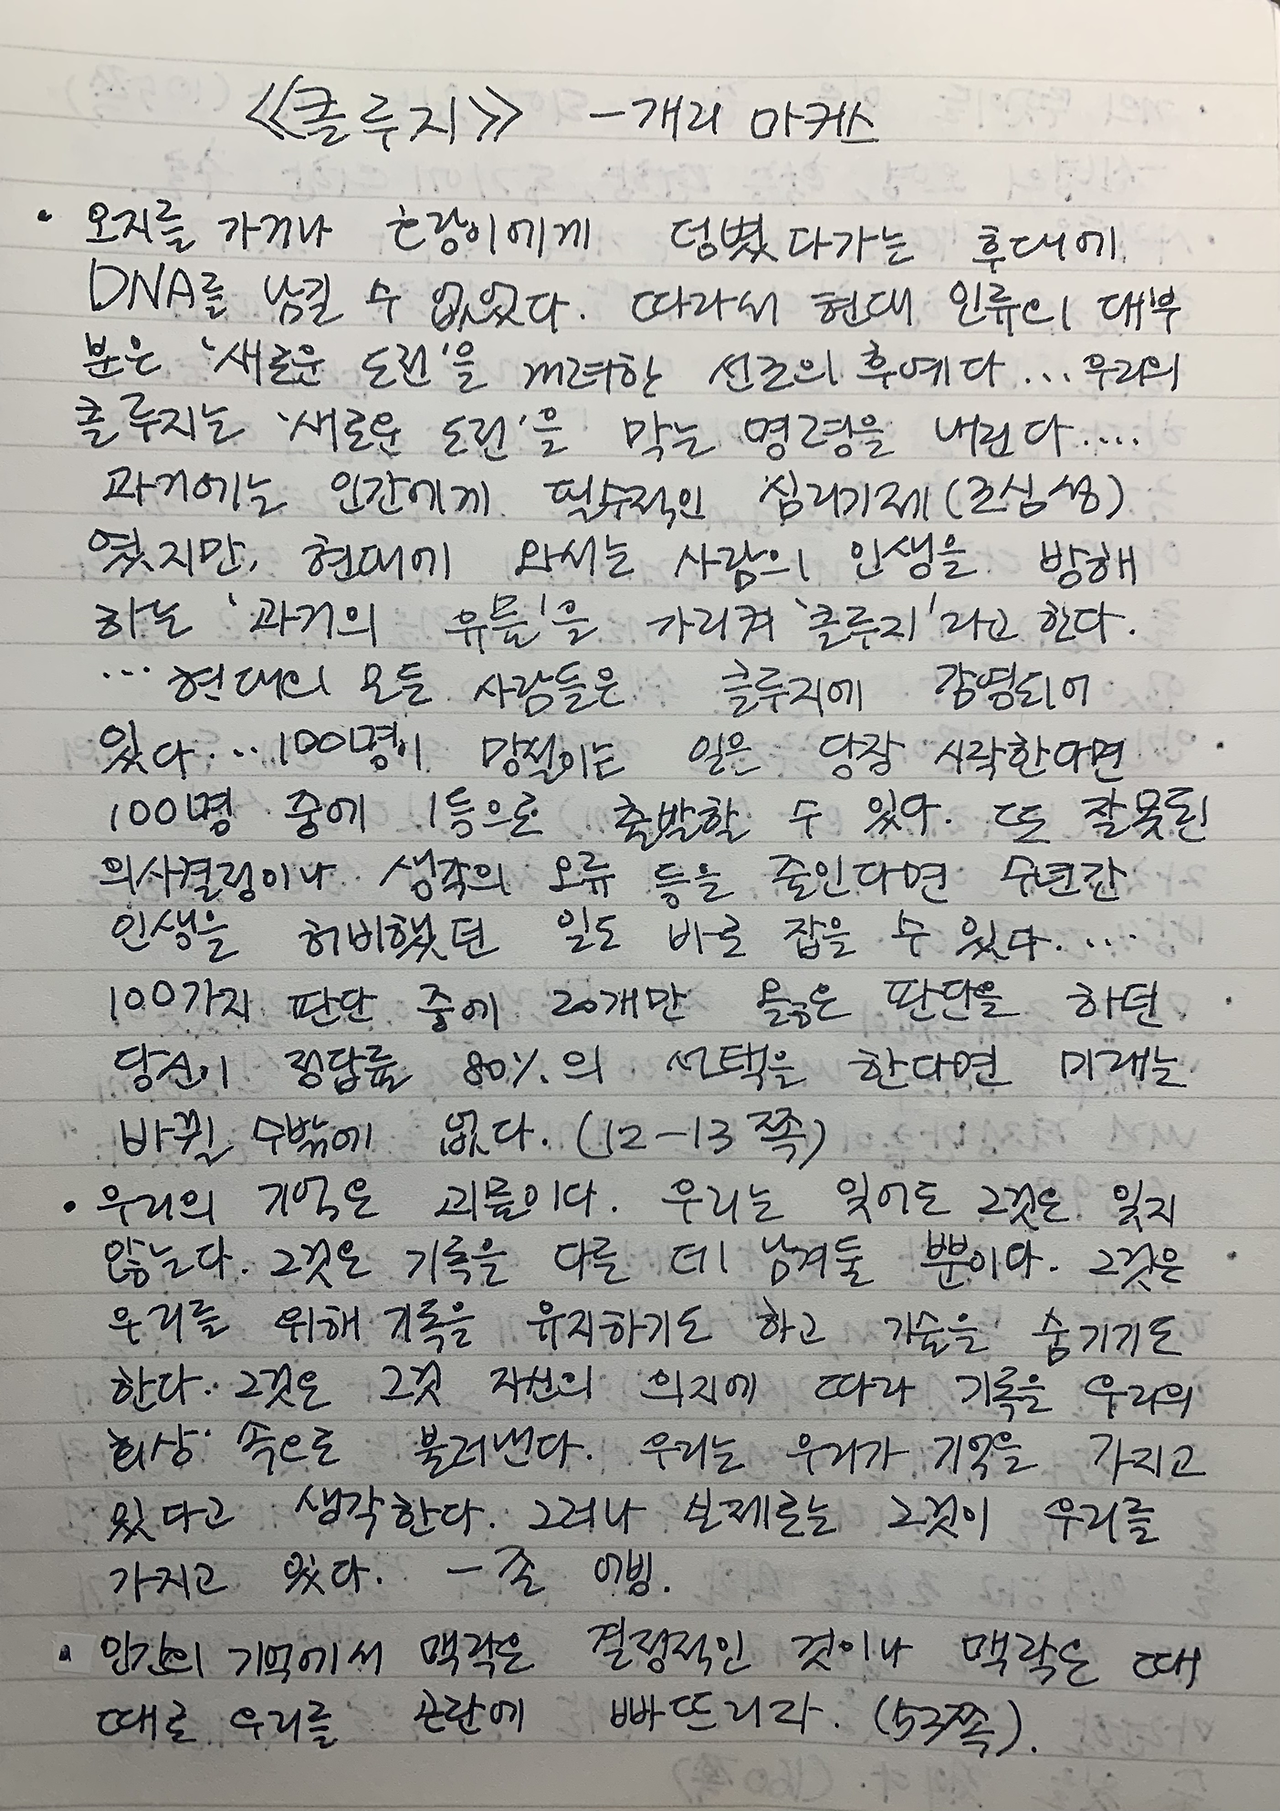 《클루지》 - 개리 마커스
• 오지를 가거나 호랑이에게 덤볐다가는 후대에
DNA를 남길 수 없었다. 따라서 현대 인류의 대부
분은 '새로운 도전'을 꺼려한 선조의 후예다... 우리의
클루지는 '새로운 도전'을 막는 명령을 내린다....
과거에는 인간에게 필수적인 심리기제(조심성)
였지만, 현대에 와서는 사람의 인생을 방해
하는 '과거의 유물'을 가리켜 '클루지'라고 한다.
... 현대의 모든 사람들은 클루지에 감염되어
있다... 100명이 망설이는 일은 당장 시작한다면
100명 중에 1등으로 출발할 수 있다. 또 잘못된
의사결정이나 생각의 오류 등을 줄인다면 수년간
인생을 허비했던 일도 바로 잡을 수 있다....
100가지 판단 중에 20개만 옳은 판단을 하던
당신이 정답률 80%의 선택을 한다면 미래는
바뀔 수밖에 없다. (12-13쪽)
• 우리의 기억은 괴물이다. 우리는 잊어도 그것은 잊지
않는다. 그것은 기록을 다른 데 남겨둘 뿐이다. 그것은
우리를 위해 기록을 유지하기도 하고 기록을 숨기기도
한다. 그것은 그것 자신의 의지에 따라 기록을 우리의
회상 속으로 불러낸다. 우리는 우리가 기억을 가지고
있다고 생각한다. 그러나 실제로는 그것이 우리를
가지고 있다. - 존 어빙.
• 인간의 기억에서 맥락은 결정적인 것이나 맥락은 때
때로 우리를 곤란에 빠뜨리라. (53쪽).